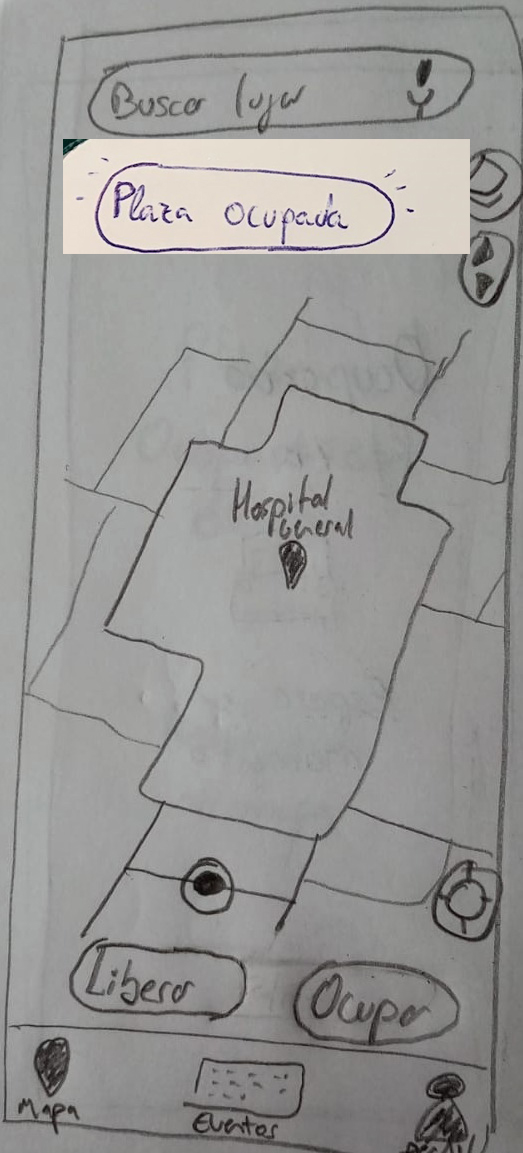 Buscar lugar
Plaza ocupada
Hospital
General
Liberar
Ocupar
Mapa
Eventos
Perfil